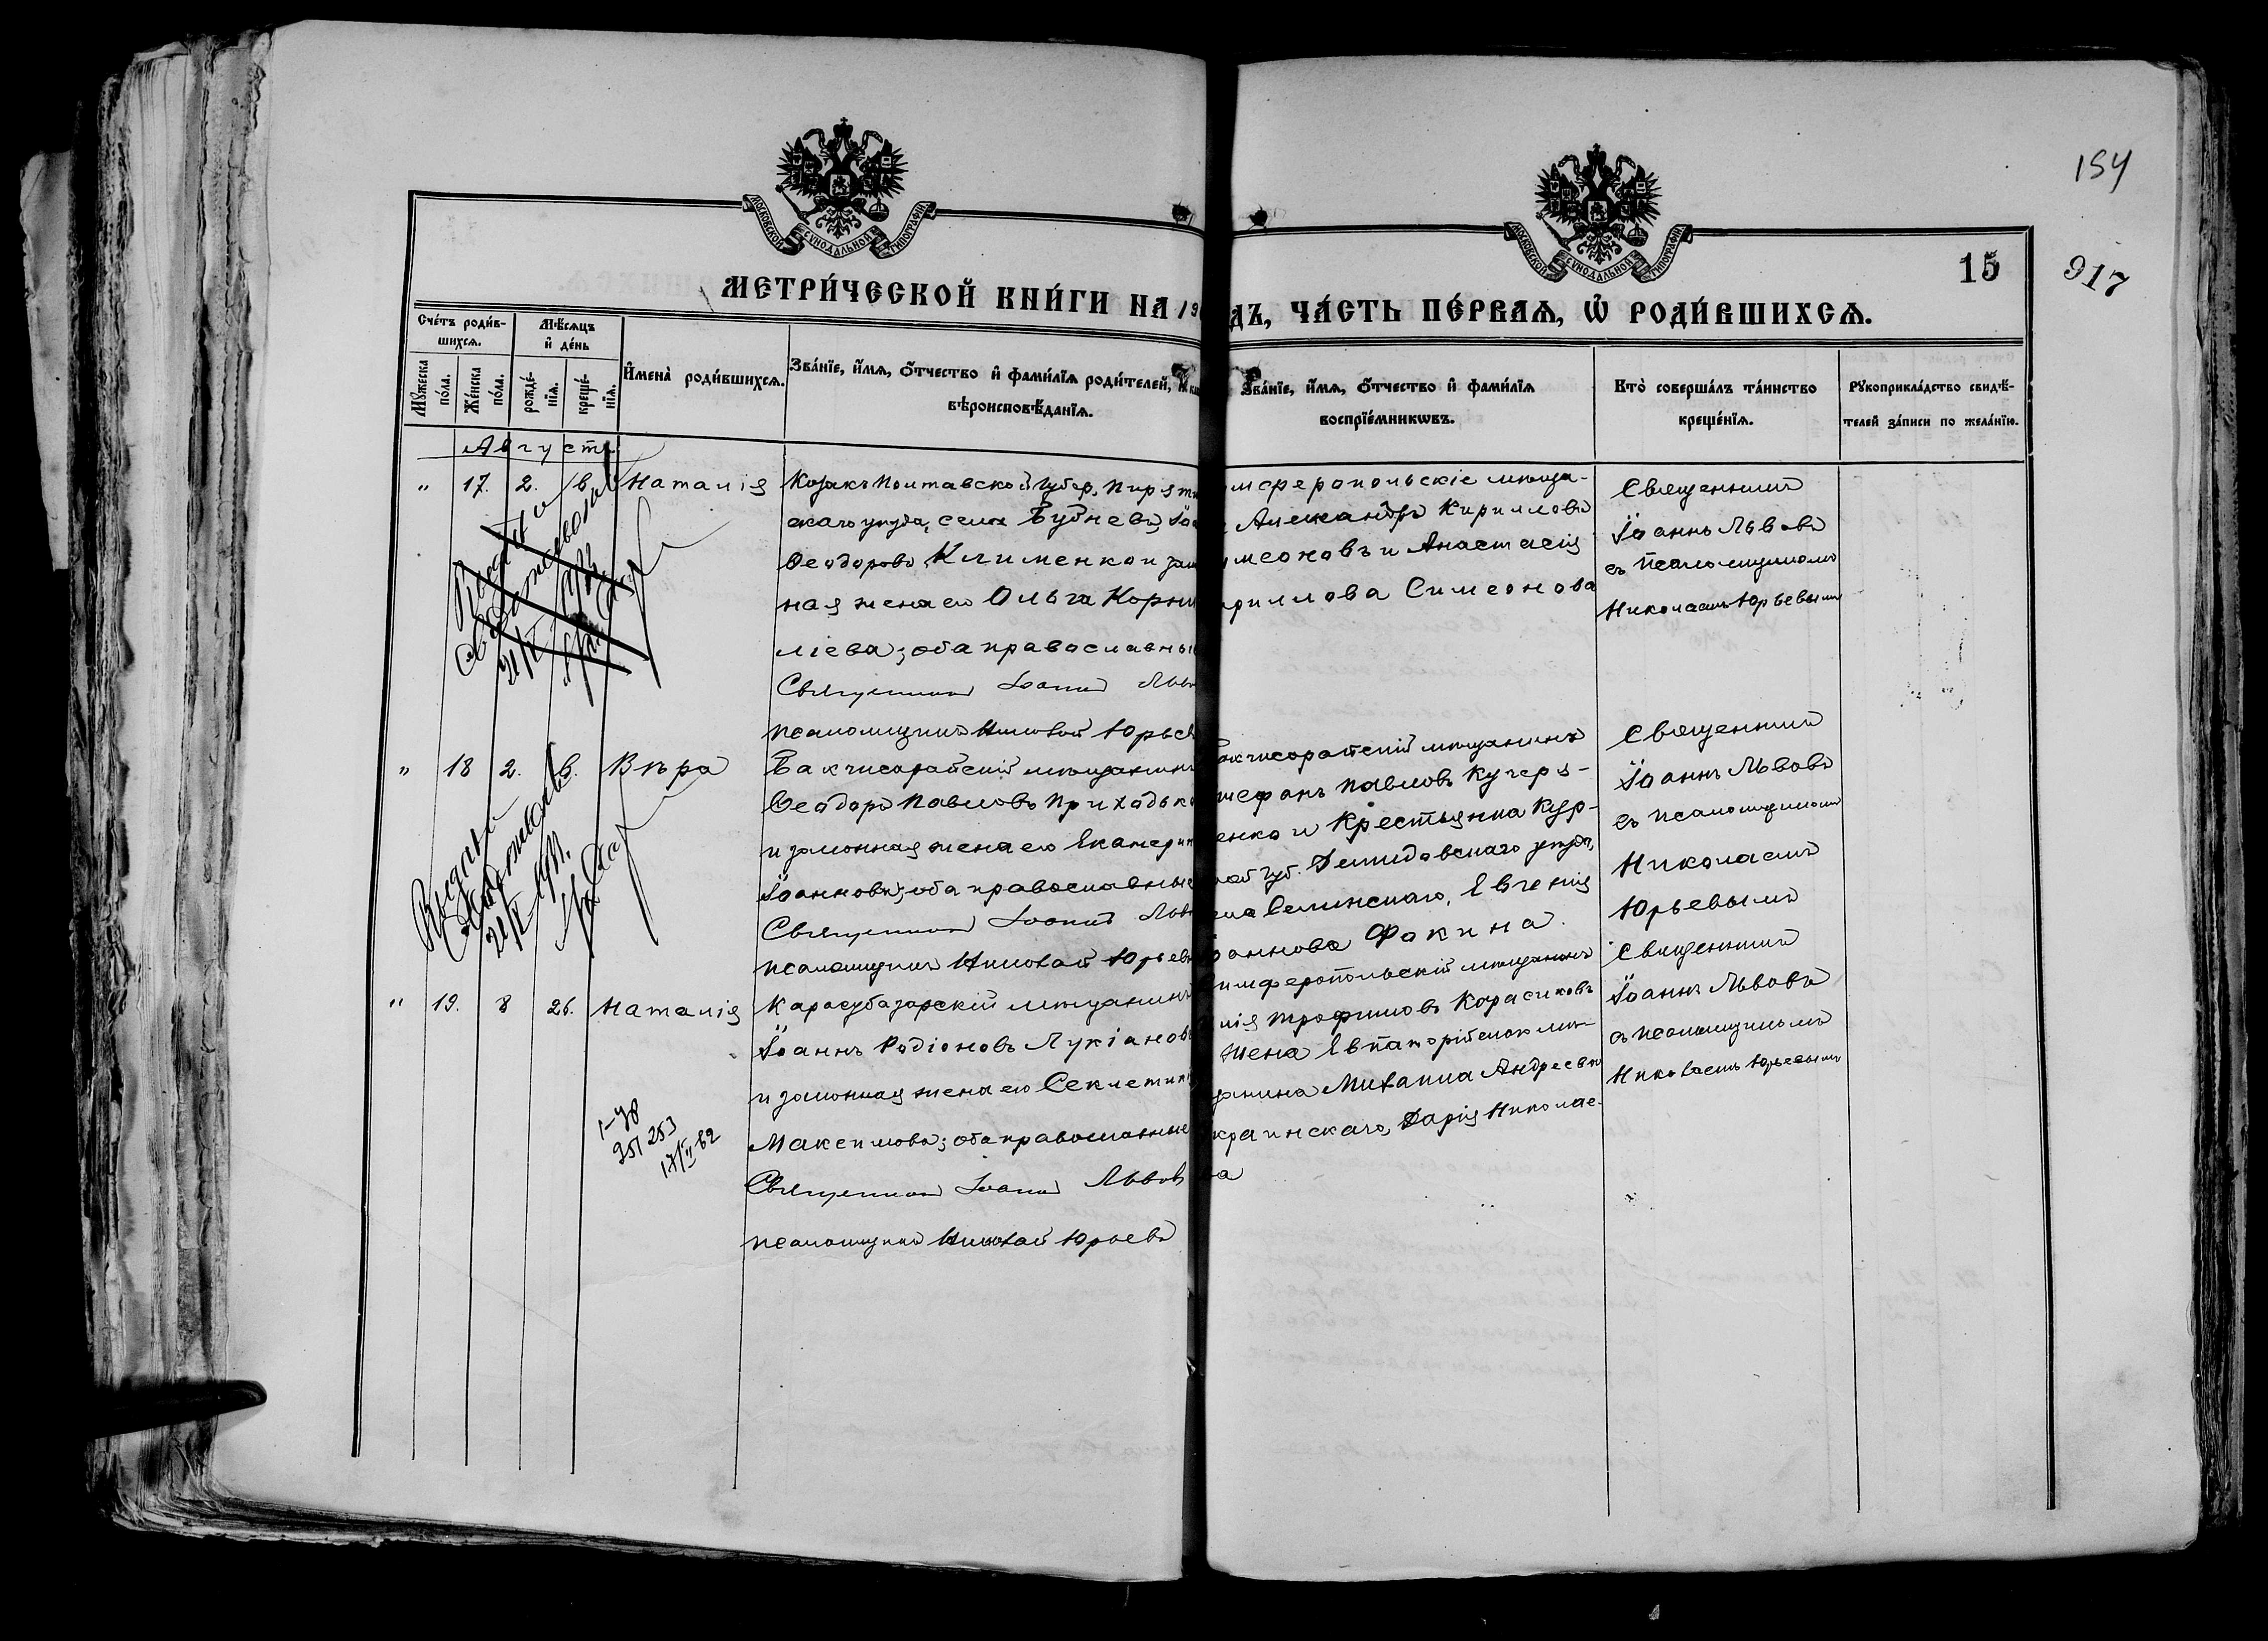 154
МОСКОВСКОЙ СѴНОДАЛЬНОЙ ТИПОГРАФІИ
МОСКОВСКОЙ СѴНОДАЛЬНОЙ ТИПОГРАФІИ
15
917
МЕТРИ́ЧЕСКОЙ КНИ́ГИ НА 19
ДЪ, ЧА́СТЬ ПЕ́РВАѦ, Ѡ҆ РОДИ́ВШИХСѦ.
Сче́тъ роди́в-
шихсѧ.
Мѣ́сѧцъ
и҆ де́нь
Мꙋ́жеска
по́ла.
Же́нска
по́ла.
рожде́-
нїѧ.
креще́-
нїѧ.
И҆мена̀ роди́вшихсѧ.
Зва́нїе, и҆́мѧ, ѻ҆́тчество и҆ фами́лїѧ роди́телей, и҆
вѣроисповѣ́данїѧ.
Зва́нїе, и҆́мѧ, ѻ҆́тчество и҆ фами́лїѧ
воспрїе́мникѡвъ.
Кто̀ соверша́лъ та́инство
креще́нїѧ.
Рꙋкоприкла́дство свидѣ́-
телей за́писи по жела́нїю.
Августъ
" 17. 2. 6 Наталія
Козакъ Полтавской Губер, Пирятин
скаго уѣзда, села Бубнева, Іоа
Ѳеодоровъ Клименко и зако
ная жена его Ольга Корни
ліева; оба православные
Священникъ Іоаннъ Льво
псаломщикъ Николай Юрьев
имферопольскіе мѣща-
Александръ Кирилловъ
имеоновъ и Анастасія
ириллова Симеонова
Священникъ
Іоаннъ Львовъ
съ псаломщикомъ
Николаемъ Юрьевымъ
21/IX
" 18 2. 6. Вѣра
Бакчисарайскій мѣщанинъ
Ѳеодоръ Павловъ Приходько
и законная жена его Екатерин
Іоаннова; оба православные
Священникъ Іоаннъ Льво
псаломщикъ Николай Юрьевъ
акчисарайскій мѣщанинъ
тефанъ Павловъ Кучеря-
енко и крестьянка Кур-
кой губ. уѣзда,
Евгенія
оаннова Фокина.
Священникъ
Іоаннъ Львовъ
съ псаломщикомъ
Николаемъ
Юрьевымъ
21/IX 1911.
" 19. 8 26. Наталія
Карасубазарскій мѣщанинъ
Іоаннъ Родіоновъ Лукіановъ
и законная жена его Секлетинія
Максимова; оба православные
Священникъ Іоаннъ Львовъ
псаломщикъ Николай Юрьевъ
имферопольскій мѣщанинъ
лія Трофимовъ Карасиковъ
жена Евпаторійскаго мѣ-
щанина Михаила Андреева
краинскаго, Дарія Николае-
ва
Священникъ
Іоаннъ Львовъ
съ псаломщикомъ
Николаемъ Юрьевымъ
1-98
251 253
17/II-62